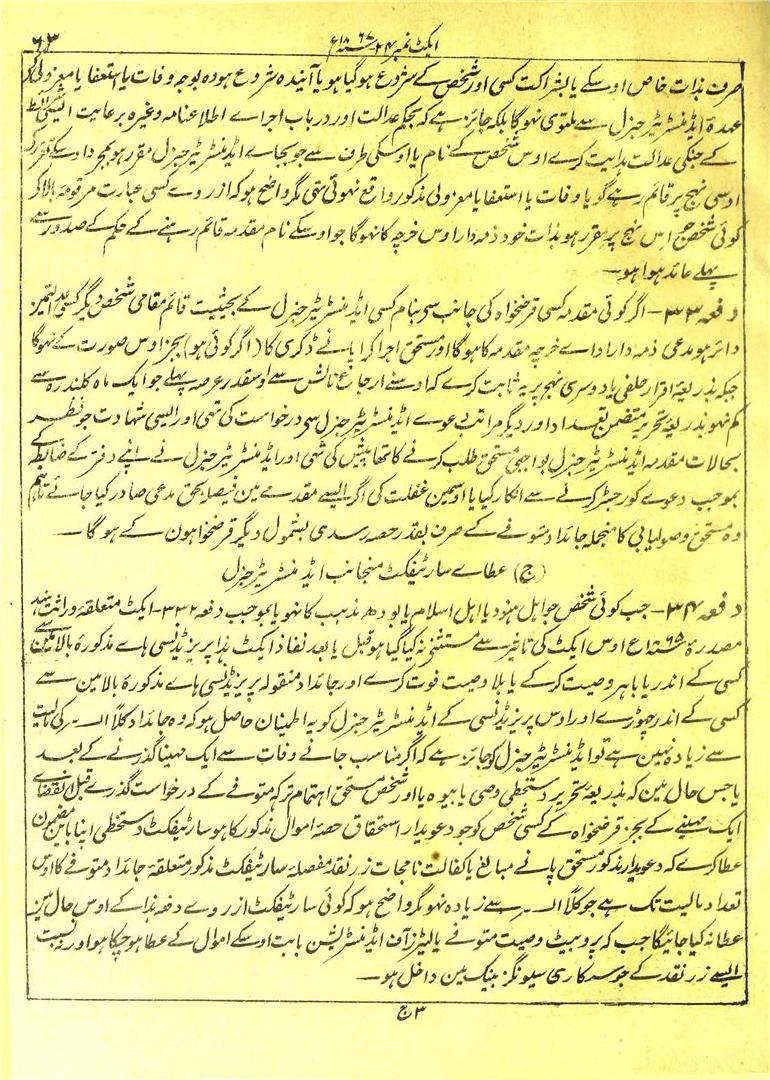 ۶۳
ایکٹ نمبر ۲۴ سنہ ۱۸۶۷ع
صرف بذات خاص اوسکے یا بشراکت کسی اور شخص کے شروع ہوگیا ہو یا آیندہ شروع ہو وہ بوجہ وفات یا استعفا یا معزولی
عہدۂ اڈمنسٹریٹر جنرل سے ملتوی نہوگا بلکہ جائز ہے کہ بحکم عدالت اور در باب اجراے اطلاعنامہ وغیرہ برعایت ایسی شرائط
کے جنکی عدالت ہدایت کرے اوس شخص کے نام یا اوسکی طرف سے جو بجاے اڈمنسٹریٹر جنرل مقرر ہو بمجرد اوسکے تقرر کے
اوسی نہج پر قائم رہے گویا وفات یا استعفا یا معزولی مذکور واقع نہوئی تھی مگر واضح ہو کہ از روے کسی عبارت مرقومۂ بالا کر
کوئی شخص جو اس نہج پر مقرر ہو بذات خود ذمہ دار اوس خرچہ کا نہوگا جو اوسکے نام مقدمہ قائم رہنے کے حکم کے صدور سے
پہلے عائد ہوا ہو۔
دفعہ ۳۳ ۔ اگر کوئی مقدمہ کسی قرضخواہ کی جانب سی بنام کسی اڈمنسٹریٹر جنرل کے بحیثیت قائم مقامی شخص دیگر کسی عدالت میں
دائر ہو مدعی ذمہ دار اداے خرچہ مقدمہ کا ہوگا اور مستحق اجرا کرا پانے ڈگری کا (اگر کوئی ہو) بجز اوس صورت کے نہوگا
جبکہ بذریعۂ اقرار حلفی یا دوسری نہج پر یہ ثابت کرے کہ اوسنے ارجاع نالش سے اوسقدر عرصہ پہلے جو ایک ماہ کلندرہ سے
کم نہو بذریعۂ تحریر متضمن تعداد اور دیگر مراتب دعوے اڈمنسٹریٹر جنرل سی درخواست کی تھی اور ایسی شہادت جو نظر
بحالات مقدمہ اڈمنسٹریٹر جنرل بواجبی مستحق طلب کرنے کا تھا پیش کی تھی اور اڈمنسٹریٹر جنرل نے اپنے دفتر کے ضابطہ کے
بموجب دعوے کو رجسٹر کرنے سے انکار کیا یا اوسمین غفلت کی اگر ایسے مقدمے مین فیصلہ بحق مدعی صادر کیا جائے تاہم
وہ مستحق وصولیابی کا منجملہ جائداد متوفے کے صرف بقدر حصہ رسدی بشمول دیگر قرضخواہون کے ہوگا۔
(ج) عطاے سارٹیفکٹ منجانب اڈمنسٹریٹر جنرل
دفعہ ۳۴ ۔ جب کوئی شخص جو اہل ہنود یا اہل اسلام یا بودھ مذہب کا نہو یا بموجب دفعہ ۳۳۲ ۔ ایکٹ متعلقۂ وراثت ہند
مصدرۂ سنہ ۱۸۶۵ع اوس ایکٹ کی تاثیر سے مستثنیٰ نہ کیا گیا ہو قبل یا بعد نفاذ ایکٹ ہذا پریزیڈنسی ہاے مذکورۂ بالا مین سے
کسی کے اندر یا باہر وصیت کرکے یا بلا وصیت فوت کرے اور جائداد منقولہ پریزیڈنسی ہاے مذکورۂ بالا مین سے
کسی کے اندر چھوڑے اور اوس پریزیڈنسی کے اڈمنسٹریٹر جنرل کو یہ اطمینان حاصل ہو کہ وہ جائداد کلاً کی مالیت
سے زیادہ نہین ہے تو اڈمنسٹریٹر جنرل کو جائز ہے کہ اگر مناسب جانے وفات سے ایک مہینا گذرنے کے بعد
یا جس حال مین کہ بذریعۂ تحریر دستخطی وصی یا بیوہ یا اور شخص مستحق اہتمام ترکہ متوفے کے درخواست گذرے قبل انقضاے
ایک مہینے کے بجز قرضخواہ کے کسی شخص کو جو دعویدار استحقاق حصہ اموال مذکور کا ہو سارٹیفکٹ دستخطی اپنا باین مضمون
عطا کرے کہ دعویدار مذکور مستحق پانے مبالغ یا کفالت نامجات زر نقد مفصلۂ سارٹیفکٹ مذکور متعلقۂ جائداد متوفے کا اوس
تعداد مالیت تک ہے جو کلاً سے زیادہ نہو مگر واضح ہو کہ کوئی سارٹیفکٹ از روے دفعہ ہذا کے اوس حال مین
عطا نہ کیا جائیگا جب کہ پروبیٹ وصیت متوفے یا لیٹرز آف اڈمنسٹریشن بابت اوسکے اموال کے عطا ہو چکا ہو اور نہ نسبت
ایسے زر نقد کے جو سرکاری سیونگز بینک مین داخل ہو۔
۳ ج